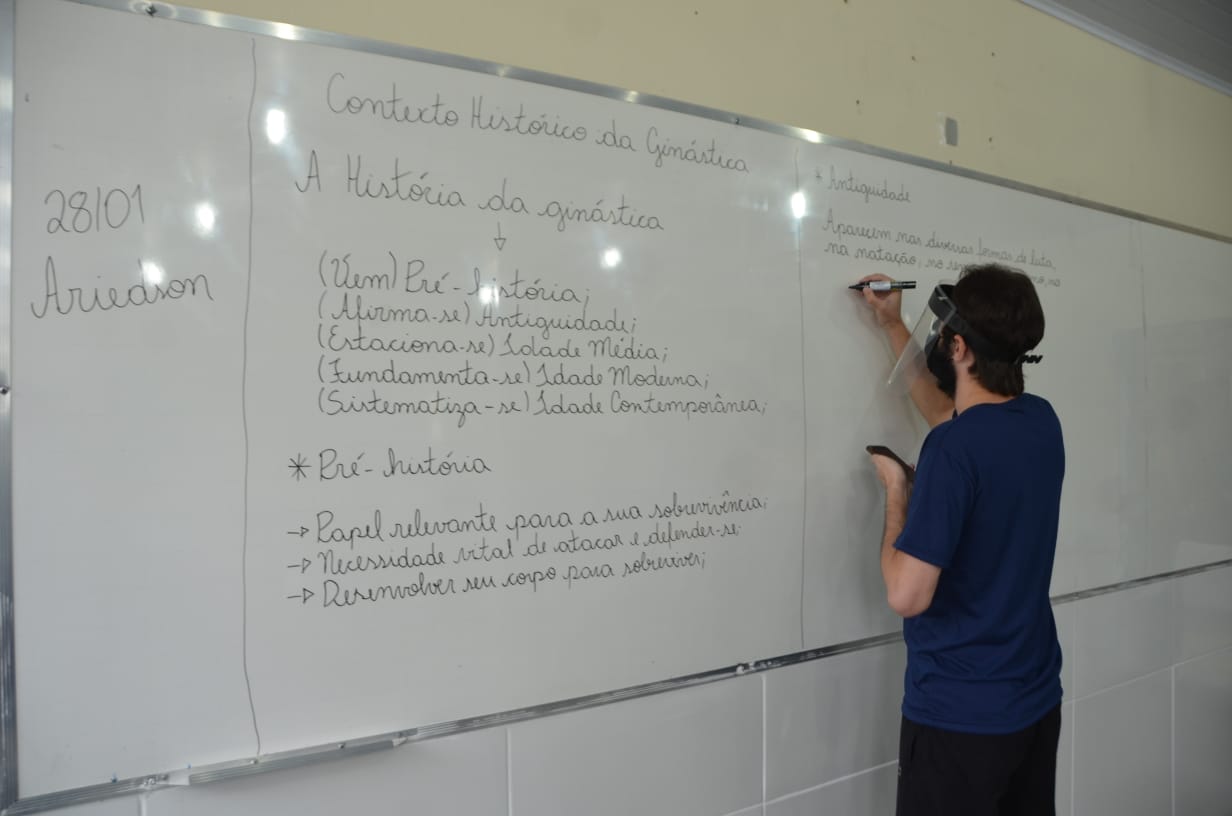 28/01
Ariedson
Contexto Histórico da Ginástica
A História da ginástica
(Vem) Pré-história;
(Afirma-se) Antiguidade;
(Estaciona-se) Idade Média;
(Fundamenta-se) Idade Moderna;
(Sistematiza-se) Idade Contemporânea;
* Pré-história
→ Papel relevante para a sua sobrevivência;
→ Necessidade vital de atacar e defender-se;
→ Desenvolver seu corpo para sobreviver;
* Antiguidade
Aparecem nas diversas formas de luta,
na natação, no na